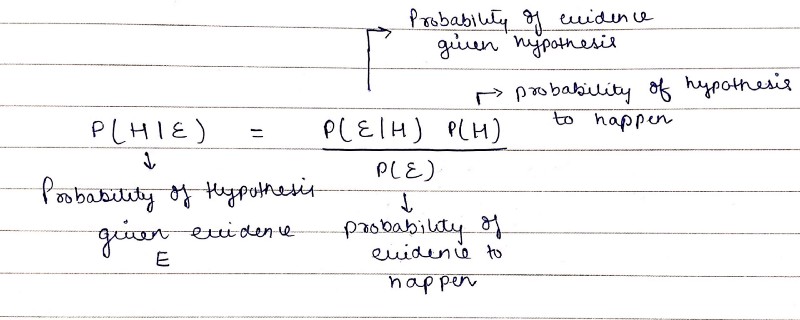 Probability of evidence
given hypothesis
probability of hypothesis
to happen
P(H|E) = P(E|H) P(H)
P(E)
Probability of Hypothesis
given evidence
E
probability of
evidence to
happen